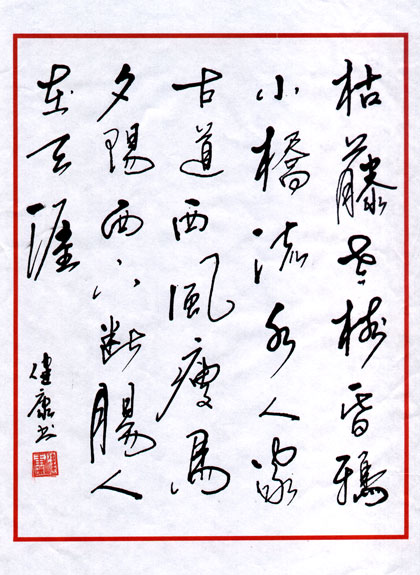 枯藤老树昏鴉
小橋流水人家
古道西風瘦馬
夕陽西下断腸人
在天涯
健康书